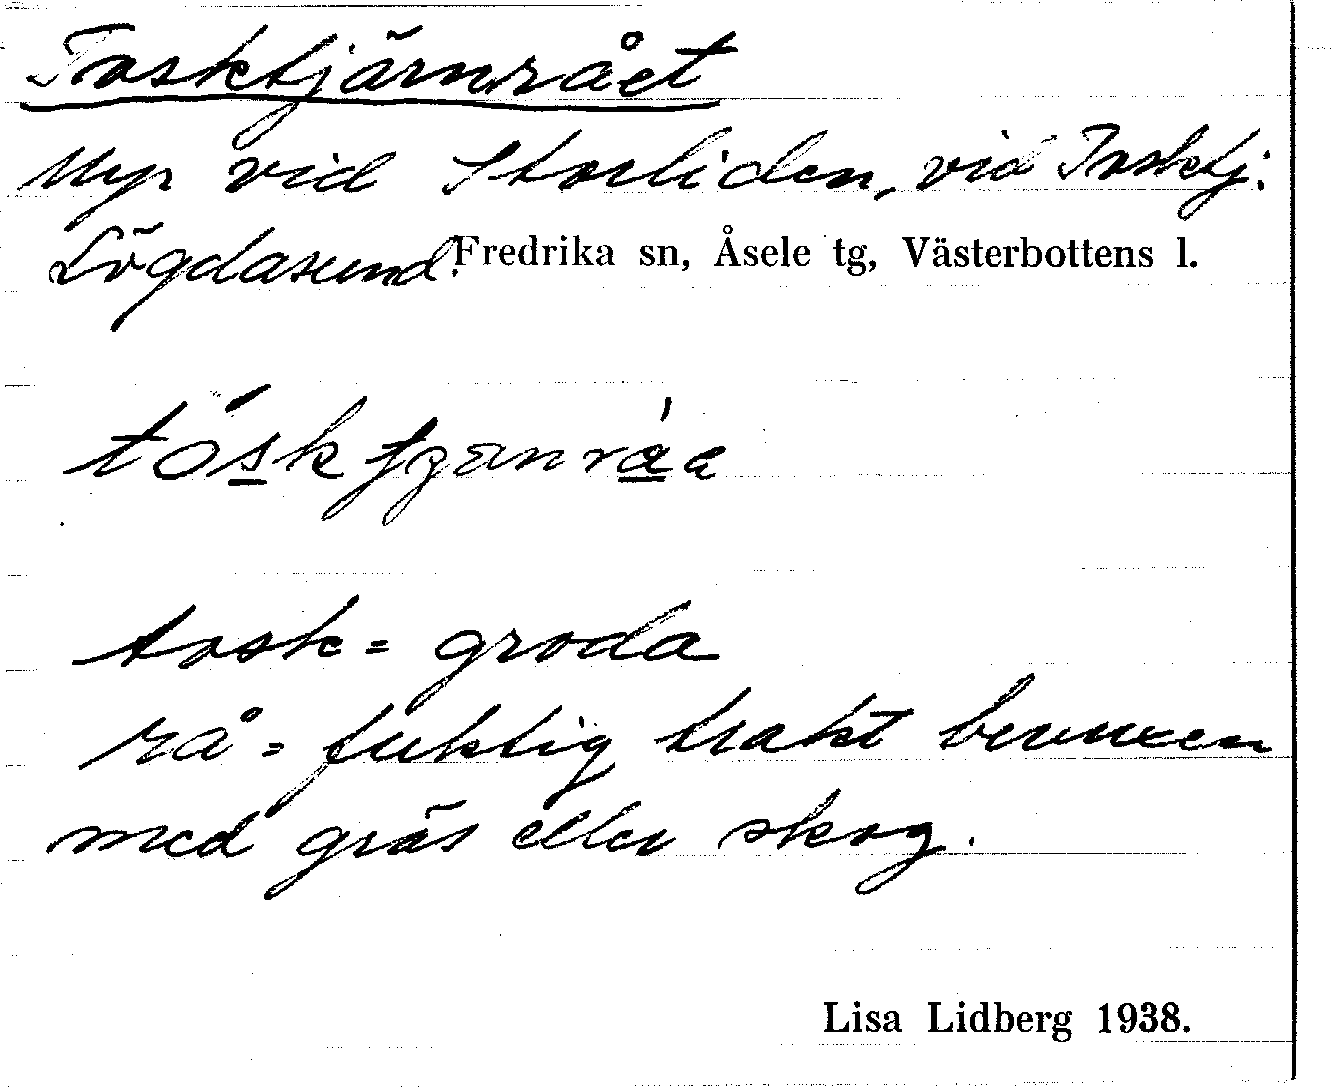 Tosktjärnrået
Myr vid Storliden, vid Tosktj.
Lögdasund. Fredrika sn, Åsele tg, Västerbottens l.
tosk = groda
rå = fuktig trakt bevuxen
med gräs eller skog.
Lisa Lidberg 1938.